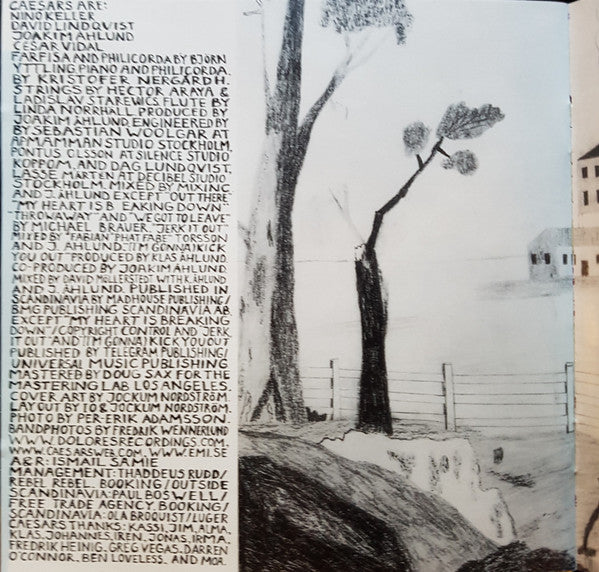 CAESARS ARE:
NINO KELLER
DAVID LINDQVIST
JOAKIM ÅHLUND
CÉSAR VIDAL
FARFISA AND PHILICORDA BY BJÖRN
YTTLING PIANO AND PHILICORDA.
BY KRISTOFER NERGÅRDH.
STRINGS BY HECTOR ARAYA &
LADISLAV STAREWICS FLUTE BY
LINDA NORRHALL PRODUCED BY
JOAKIM ÅHLUND. ENGINEERED BY
BY SEBASTIAN WOOLGAR AT
APMAMMAN STUDIO STOCKHOLM.
PONTUS OLSSON AT SILENCE STUDIO
KOPPOM. AND DAG LUNDQVIST.
LASSE MÅRTEN AT DECIBEL STUDIO
STOCKHOLM. MIXED BY MIXINC
AND J. ÅHLUND EXCEPT "OUT THERE"
"MY HEART IS B EAKING DOWN"
"THROWAWAY" AND "WE GOT TO LEAVE"
BY MICHAEL BRAUER. "JERK IT OUT"
MIXED BY "FABIAN "PHAT FABE" TORSSON
AND J. ÅHLUND. "(I'M GONNA) KICK
YOU OUT" PRODUCED BY KLAS ÅHLUND.
CO-PRODUCED BY JOAKIM ÅHLUND.
MIXED BY DAVID MÖLLERSTEDT. WITH K. ÅHLUND
AND J. ÅHLUND. PUBLLISHED IN
SCANDINAVIA BY MADHOUSE PUBLISHING/
BMG PUBLISHING SCANDINAVIA AB.
EXCEPT "MY HEART IS BREAKING
DOWN"/COPYRIGHT CONTROL AND "JERK
IT OUT" AND "(I'M GONNA) KICK YOU OUT
PUBLISHED BY TELEGRAM PUBLISHING/
UNIVERSAL MUSIC PUBLISHING
MASTERED BY DOUG SAX FOR THE
MASTERING LAB LOS ANGELES.
COVER ART BY JOCKUM NORDSTRÖM.
LAY OUT BY IO & JOCKUM NORDSTRÖM.
PHOTO BY PER-ERIK ADAMSSON.
BANDPHOTOS BY FREDRIK WENNERLUND
WWW.DOLORESRECORDINGS.COM.
WWW.CAESARSWEB.COM. WWW.EMI.SE
A&R: ISMAIL SAMIE
MANAGEMENT: THADDEUS RUDD/
REBEL REBEL. BOOKING/OUTSIDE
SCANDINAVIA: PAUL BOSWELL/
FREE TRADE AGENCY. BOOKING/
SCANDINAVIA: OLA BROQUIST/LUGER
CAESARS THANKS: KASSI, JIM, ALMA,
KLAS, JOHANNES, IREN, JONAS, IRMA,
FREDRIK HEINIG, GREG VEGAS, DARREN
O'CONNOR, BEN LOVELESS, AND MOA.